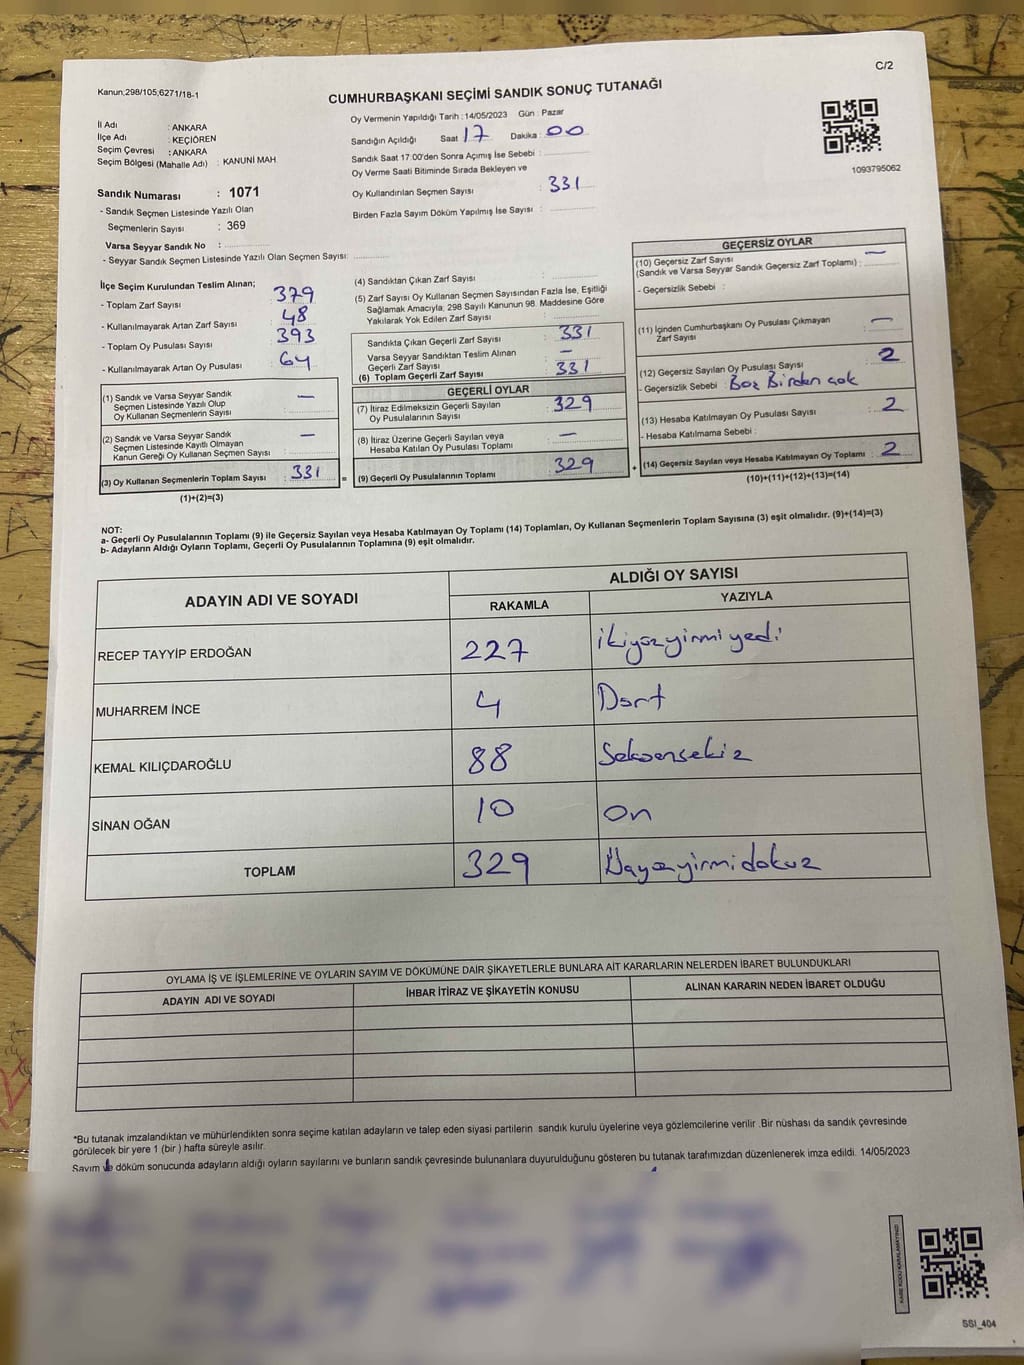 C/2
Kanun;298/105,6271/18-1
CUMHURBAŞKANI SEÇİMİ SANDIK SONUÇ TUTANAĞI
İl Adı : ANKARA
İlçe Adı : KEÇİÖREN
Seçim Çevresi : ANKARA
Seçim Bölgesi (Mahalle Adı) : KANUNİ MAH
Sandık Numarası : 1071
- Sandık Seçmen Listesinde Yazılı Olan
Seçmenlerin Sayısı : 369
Varsa Seyyar Sandık No :
- Seyyar Sandık Seçmen Listesinde Yazılı Olan Seçmen Sayısı:
Oy Vermenin Yapıldığı Tarih :14/05/2023 Gün : Pazar
Sandığın Açıldığı Saat 17 Dakika : 00
Sandık Saat 17:00'den Sonra Açımış İse Sebebi :
Oy Verme Saati Bitiminde Sırada Bekleyen ve
Oy Kullandırılan Seçmen Sayısı : 331
Birden Fazla Sayım Döküm Yapılmış İse Sayısı :
1093795062
İlçe Seçim Kurulundan Teslim Alınan;
- Toplam Zarf Sayısı : 379
- Kullanılmayarak Artan Zarf Sayısı : 48
- Toplam Oy Pusulası Sayısı : 393
- Kullanılmayarak Artan Oy Pusulası : 64
(1) Sandık ve Varsa Seyyar Sandık
Seçmen Listesinde Yazılı Olup
Oy Kullanan Seçmenlerin Sayısı : —
(2) Sandık ve Varsa Seyyar Sandık
Seçmen Listesinde Kayıtlı Olmayan
Kanun Gereği Oy Kullanan Seçmen Sayısı : —
(3) Oy Kullanan Seçmenlerin Toplam Sayısı : 331
(1)+(2)=(3)
(4) Sandıktan Çıkan Zarf Sayısı :
(5) Zarf Sayısı Oy Kullanan Seçmen Sayısından Fazla İse, Eşitliği
Sağlamak Amacıyla; 298 Sayılı Kanunun 98. Maddesine Göre
Yakılarak Yok Edilen Zarf Sayısı :
Sandıkta Çıkan Geçerli Zarf Sayısı : 331
Varsa Seyyar Sandıktan Teslim Alınan
Geçerli Zarf Sayısı : —
(6) Toplam Geçerli Zarf Sayısı : 331
GEÇERLİ OYLAR
(7) İtiraz Edilmeksizin Geçerli Sayılan
Oy Pusulalarının Sayısı : 329
(8) İtiraz Üzerine Geçerli Sayılan veya
Hesaba Katılan Oy Pusulası Toplamı : —
= (9) Geçerli Oy Pusulalarının Toplamı : 329
GEÇERSİZ OYLAR
(10) Geçersiz Zarf Sayısı
(Sandık ve Varsa Seyyar Sandık Geçersiz Zarf Toplamı) : —
- Geçersizlik Sebebi :
(11) İçinden Cumhurbaşkanı Oy Pusulası Çıkmayan
Zarf Sayısı : —
(12) Geçersiz Sayılan Oy Pusulası Sayısı : 2
- Geçersizlik Sebebi : Boz Birden çok
(13) Hesaba Katılmayan Oy Pusulası Sayısı : 2
- Hesaba Katılmama Sebebi :
+ (14) Geçersiz Sayılan veya Hesaba Katılmayan Oy Toplamı : 2
(10)+(11)+(12)+(13)=(14)
NOT:
a- Geçerli Oy Pusulalarının Toplamı (9) ile Geçersiz Sayılan veya Hesaba Katılmayan Oy Toplamı (14) Toplamları, Oy Kullanan Seçmenlerin Toplam Sayısına (3) eşit olmalıdır. (9)+(14)=(3)
b- Adayların Aldığı Oyların Toplamı, Geçerli Oy Pusulalarının Toplamına (9) eşit olmalıdır.
ADAYIN ADI VE SOYADI
ALDIĞI OY SAYISI
RAKAMLA YAZIYLA
RECEP TAYYİP ERDOĞAN 227 ikiyüzyirmiyedi
MUHARREM İNCE 4 Dört
KEMAL KILIÇDAROĞLU 88 Seksensekiz
SİNAN OĞAN 10 On
TOPLAM 329 Üçyüzyirmidokuz
OYLAMA İŞ VE İŞLEMLERİNE VE OYLARIN SAYIM VE DÖKÜMÜNE DAİR ŞİKAYETLERLE BUNLARA AİT KARARLARIN NELERDEN İBARET BULUNDUKLARI
ADAYIN ADI VE SOYADI İHBAR İTİRAZ VE ŞİKAYETİN KONUSU ALINAN KARARIN NEDEN İBARET OLDUĞU
*Bu tutanak imzalandıktan ve mühürlendikten sonra seçime katılan adayların ve talep eden siyasi partilerin sandık kurulu üyelerine veya gözlemcilerine verilir .Bir nüshası da sandık çevresinde
görülecek bir yere 1 (bir ) hafta süreyle asılır.
Sayım ve döküm sonucunda adayların aldığı oyların sayılarını ve bunların sandık çevresinde bulunanlara duyurulduğunu gösteren bu tutanak tarafımızdan düzenlenerek imza edildi. 14/05/2023
KARE KODU KARALAMAYINIZ!
SSI_404